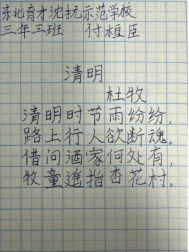 东北育才沈抚示范学校
三年三班 付桓臣
清明
杜牧
清明时节雨纷纷，
路上行人欲断魂。
借问酒家何处有，
牧童遥指杏花村。